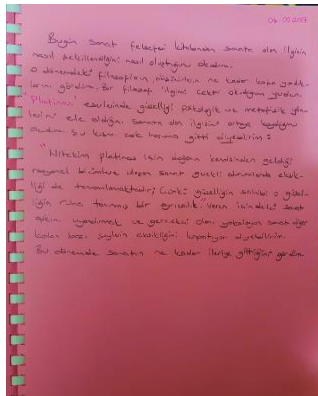 06.03.2017
Bugün sanat felsefesi kitabından sanata olan ilginin
nasıl şekillendiğini nasıl oluştuğunu okudum.
O dönemdeki filozofların, düşünürlerin ne kadar kafa yorduk-
larını gördüm. Bir filozof ilgimi çekti okuduğum yerden.
Platinas eserlerinde güzelliği psikolojik ve metafizik yön-
lerini ele aldığını, sanata olan ilgisini ortaya koyduğunu
okudum. Şu kısım çok hoşuma gitti diyebilirim:
"Nitekim platinas için doğanın kendisinden geldiği
rasyonel biçimlere ulaşan sanat gerekli durumlarda eksik-
liği de tamamlamaktadır; Çünkü güzelliğin sahibi o güzel-
liğin ruha tanınmış bir ayrıcalık veren içindeki sanat
aşkını uyandırmak ve gerçekçi olanı yakalayan sanat diğer
kalan bazı şeylerin eksikliğini kapatıyor diyebilirim.
Bu dönemde sanatın ne kadar ileriye gittiğini gördüm.